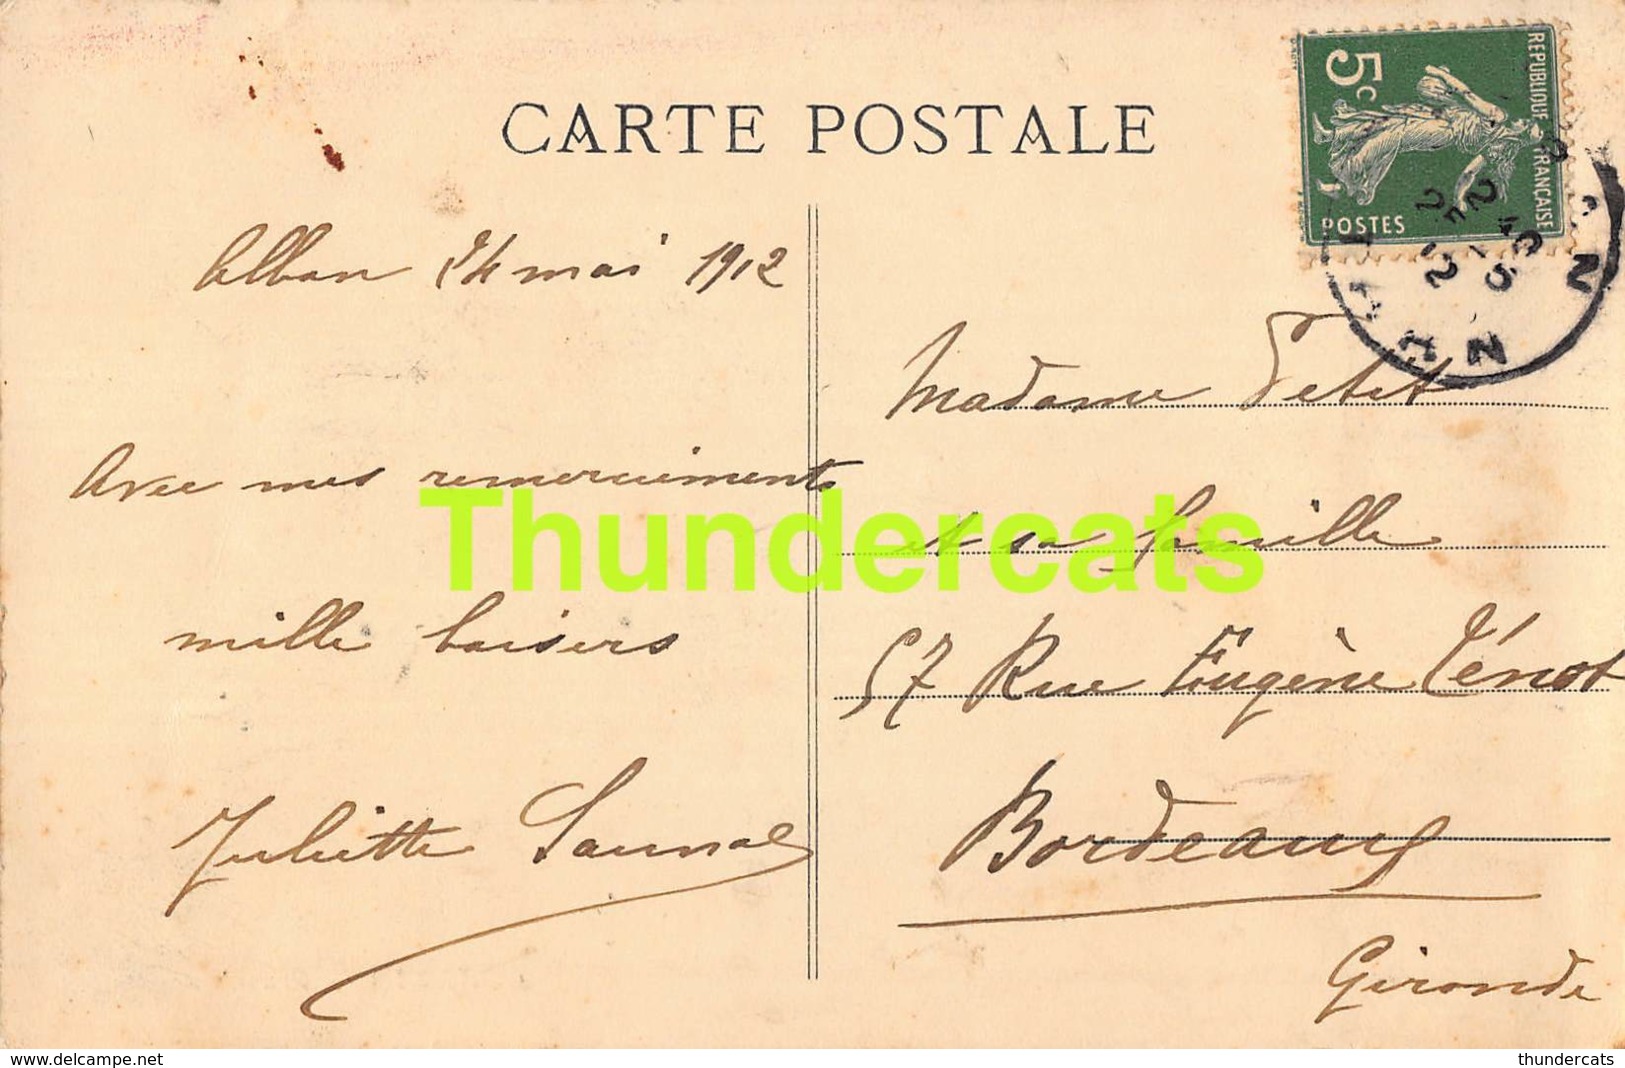 CARTE POSTALE
5c
REPUBLIQUE FRANÇAISE
POSTES
Alban 24 mai 1912
Avec mes remerciements
mille baisers
Juliette
Madame Petit
et sa famille
57 Rue Eugène Ténot
Bordeaux
Gironde
Thundercats
delcampe.net
thundercats